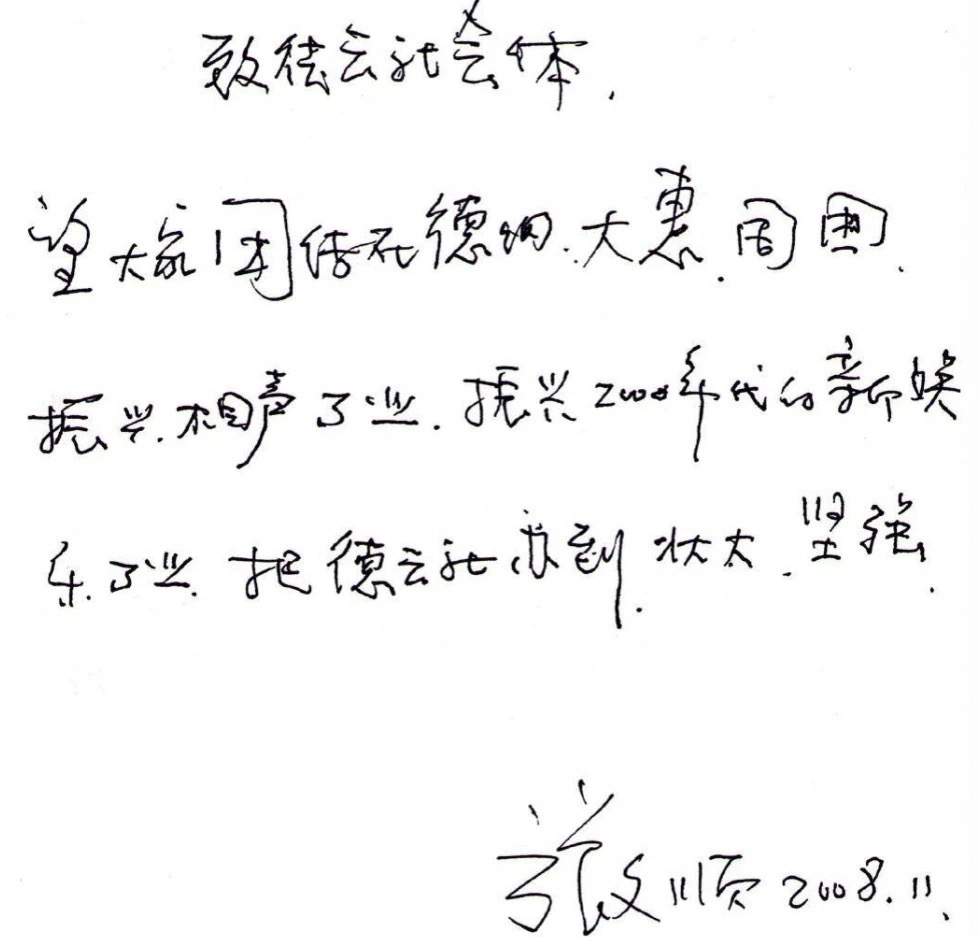 致德云社全体.
望大家团结在德纲.大惠.周围.
振兴.相声事业.振兴2000年代的新娱
乐.事业.把德云社办到.状大.坚强.
张文顺 2008.11.